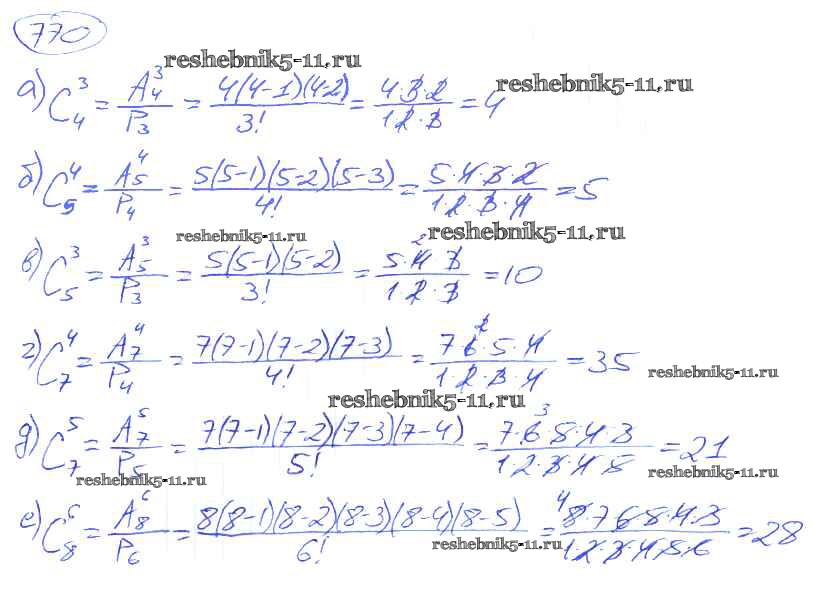 770
reshebnik5-11.ru
а) C₄³ = A₄³/P₃ = 4(4-1)(4-2)/3! = 4·3·2/1·2·3 = 4 reshebnik5-11.ru
б) C₅⁴ = A₅⁴/P₄ = 5(5-1)(5-2)(5-3)/4! = 5·4·3·2/1·2·3·4 = 5
reshebnik5-11.ru reshebnik5-11.ru
в) C₅³ = A₅³/P₃ = 5(5-1)(5-2)/3! = 5·4·3/1·2·3 2 = 10
г) C₇⁴ = A₇⁴/P₄ = 7(7-1)(7-2)(7-3)/4! = 7·6·5·4/1·2·3·4 2 = 35 reshebnik5-11.ru
reshebnik5-11.ru
д) C₇⁵ = A₇⁵/P₅ = 7(7-1)(7-2)(7-3)(7-4)/5! = 7·6·5·4·3/1·2·3·4·5 3 = 21
reshebnik5-11.ru reshebnik5-11.ru
е) C₈⁶ = A₈⁶/P₆ = 8(8-1)(8-2)(8-3)(8-4)(8-5)/6! = 8·7·6·5·4·3/1·2·3·4·5·6 4 = 28
reshebnik5-11.ru